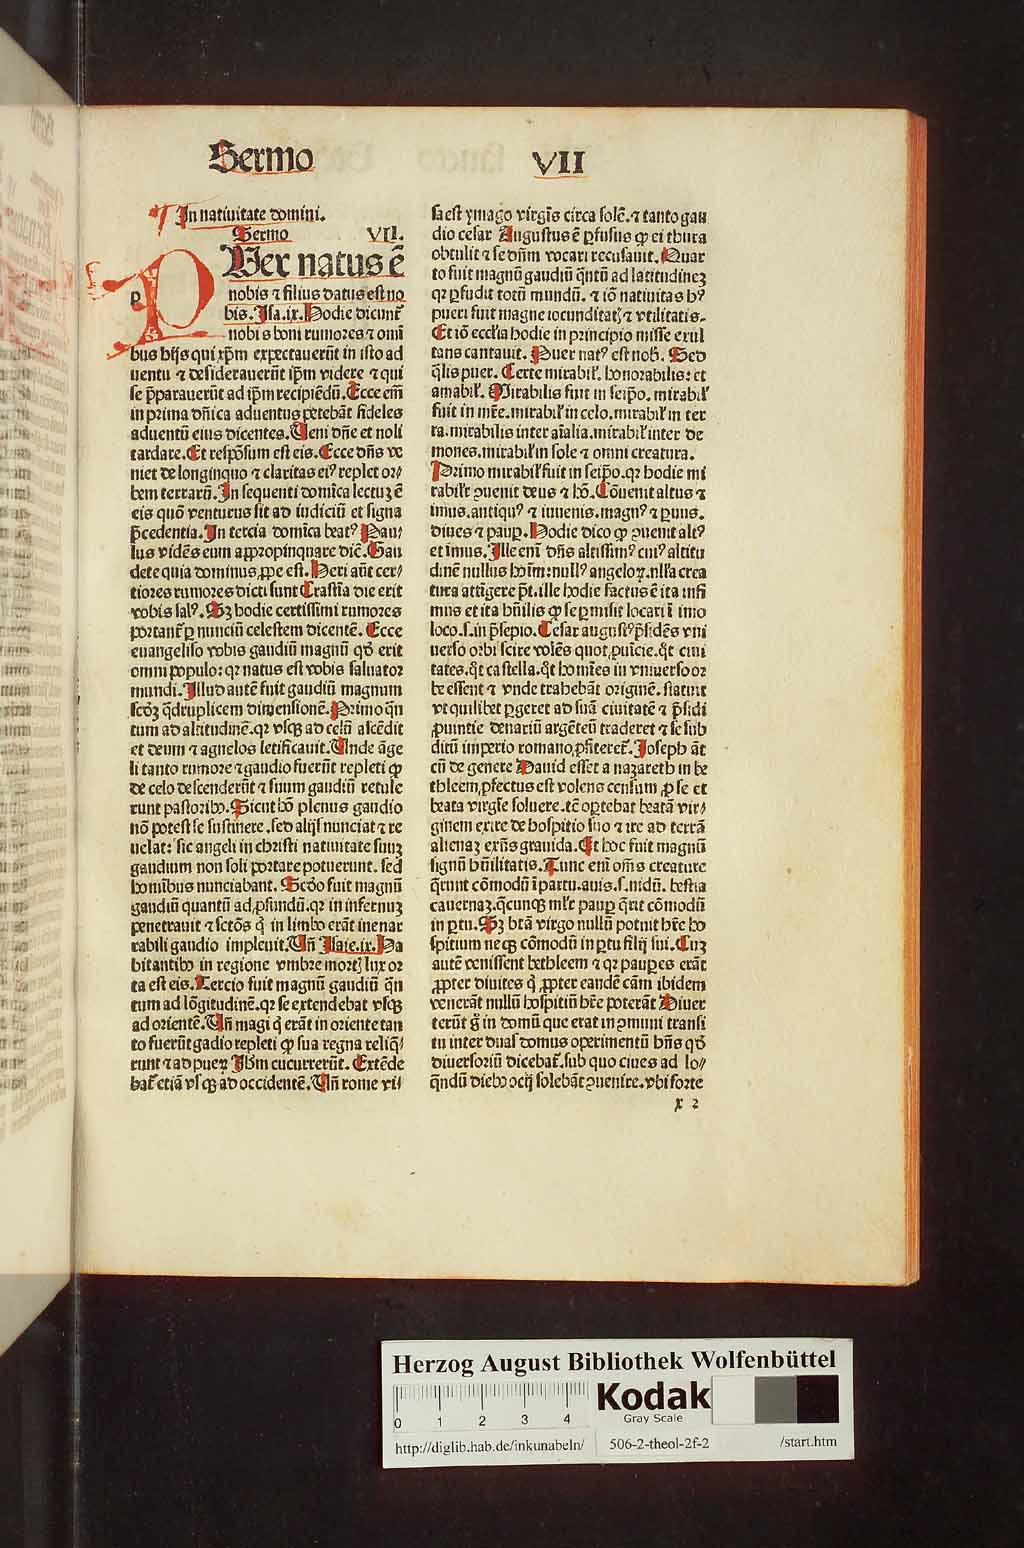 Sermo VII
In natiuitate domini.
Sermo VII.
PUer natus ē
nobis ⁊ filius datus est no
bis. Isa.ix. Hodie dicunt᷑
nobis boni rumores ⁊ omī
bus hijs qui xp̄m expectauerūt in isto ad
uentu ⁊ desiderauerūt ip̄m videre ⁊ qui
se p̄parauerūt ad ip̄m recipiēdū. Ecce em̄
in prima dn̄ica aduentus petebāt fideles
aduentū eius dicentes. Ueni dn̄e et noli
tardare. Et respōsum est eis. Ecce dn̄s ve
niet de longinquo ⁊ claritas eiꝰ replet or⸗
bem terrarū. In sequenti domīca lectuꝫ ē
eis quō venturus sit ad iudiciū et signa
p̄cedentia. In tercia domīca beatꝰ Pau⸗
lus vidēs eum appropinquare dic̄. Gau
dete quia dominus ꝓpe est. Heri aūt cer⸗
tiores rumores dicti sunt Crastīa die erit
vobis salꝰ. Sꝫ hodie certissimi rumores
portant᷑ ꝑ nunciū celestem dicentē. Ecce
euangeliso vobis gaudiū magnū qd̄ erit
omni populo: qꝛ natus est vobis saluator
mundi. Illud autē fuit gaudiū magnum
scd̄ꝫ q̄druplicem dimensionē. Primo q̄n
tum ad altitudinē. qꝛ vsqꝫ ad celū ascēdit
et deum ⁊ agnelos letificauit. Unde āge
li tanto rumore ⁊ gaudio fuerūt repleti ꝙ
de celo descenderūt ⁊ suum gaudiū retule
runt pastoribꝰ. Sicut hō plenus gaudio
nō potest se sustinere. sed alijs nunciat ⁊ re
uelat: sic angeli in christi natiuitate suuꝫ
gaudium non soli portare potuerunt. sed
homībus nunciabant. Scd̄o fuit magnū
gaudiū quantū ad ꝓfundū. qꝛ in infernuꝫ
penetrauit ⁊ sctōs q̇ in limbo erāt inenar
rabili gaudio impleuit. Un̄ Isaie.ix. Ha
bitantibꝰ in regione vmbre mortꝭ lux or
ta est eis. Tercio fuit magnū gaudiū q̄n
tum ad lōgitudinē. qꝛ se extendebat vsqꝫ
ad orientē. Un̄ magi q̇ erāt in oriente tan
to fuerūt gadio repleti ꝙ sua regna reliq̄⸗
runt ⁊ ad pueꝝ Ih̄m cucurrerūt. Extēde
bat᷑ etiā vsqꝫ ad occidentē. Un̄ rome vi⸗
sa est ymago virgīs circa solē. ⁊ tanto gau
dio cesar Augustus ē ꝑfusus ꝙ ei thura
obtulit ⁊ se dn̄m vocari recusauit. Quar
to fuit magnū gaudiū q̄ntū ad latitudineꝫ
qꝛ ꝑfudit totū mundū. ⁊ iō natiuitas hꝰ
pueri fuit magne iocunditatꝭ ⁊ vtilitatis.
Et iō eccl̄ia hodie in principio misse exul
tans cantauit. Puer natꝰ est nob̄. Sed
q̄lis puer. Certe mirabil̓. honorabilis: et
amabil̓. Mirabilis fuit in seip̄o. mirabil̓
fuit in mr̄e. mirabil̓ in celo. mirabil̓ in ter
ra. mirabilis inter aīalia. mirabil̓ inter de
mones. mirabil̓ in sole ⁊ omni creatura.
Primo mirabil̓ fuit in seip̄o. qꝛ hodie mi
rabilr̄ ꝯuenit deus ⁊ hō. Cōuenit altus ⁊
imus. antiquꝰ ⁊ iuuenis. magnꝰ ⁊ ꝑuus.
diues ⁊ pauꝑ. Hodie dico ꝙ ꝯuenit altꝰ
et imus. Ille eni dn̄s altissimꝰ cuiꝰ altitu
dinē nullus hoīm: nullꝰ angeloꝝ. nll̄a crea
tura attīgere pt̄. ille hodie factus ē ita infi
mus et ita hūilis ꝙ se ꝑmisit locari ī imo
loco .s. in p̄sepio. Cesar augustꝰ p̄sidēs vni
uerso orbi scire volēs quot ꝓuīcie. q̇t ciui
tates. q̇t castella. q̇t homīes in vniuerso or
be essent ⁊ vnde trahebāt originē. statuit
vt quilibet ꝑgeret ad suā ciuitatē ⁊ p̄sidi
ꝓuintie denariū argēteū traderet ⁊ se sub
ditū imperio romano ꝓfiteret᷑. Joseph āt
cū de genere Dauid esset a nazareth in be
thleem ꝓfectus est volens censum ꝓ se et
beata virgīe soluere. tē oꝑtebat beatā vir⸗
ginem exire de hospitio suo ⁊ ire ad terrā
alienaꝫ exn̄s grauida. Et hoc fuit magnū
signū hūilitatis. Tunc eni om̄s creature
q̄runt cōmodū ī partu. auis .s. nidū. bestia
cauernaꝫ. q̄cunqꝫ ml̓r pauꝑ q̄rit cōmodū
in ꝑtu. Sꝫ btā virgo nullū potuit hr̄e ho
spitium neqꝫ cōmodū in ꝑtu filij sui. Cuꝫ
autē venissent bethleem ⁊ qꝛ pauꝑes erāt
ꝓpter diuites q̇ ꝓpter eandē cām ibidem
venerāt nullū hospitiū hr̄e poterāt Diuer
terūt g̊ in domū que erat in ꝯmuni transi
tu inter duas domus operimentū hn̄s qd̄
diuersoriū dicebat᷑. sub quo ciues ad lo⸗
q̄ndū diebꝰ ocij solebāt ꝯuenire. vbi forte
x 2
Herzog August Bibliothek Wolfenbüttel
0 1 2 3 4
Kodak
Gray Scale
http://diglib.hab.de/inkunabeln/ 506-2-theol-2f-2 /start.htm